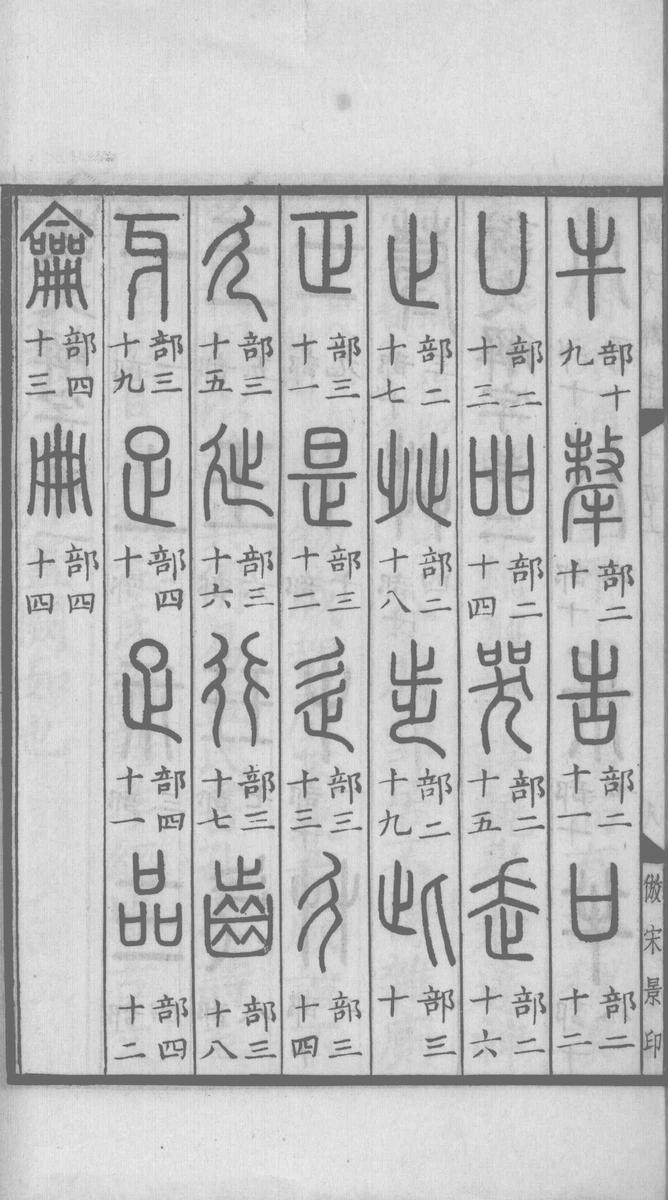 倣宋景印
牛部十九 犛部二十 告部二十一 口部二十二
凵部二十三 吅部二十四 哭部二十五 走部二十六
止部二十七 癶部二十八 步部二十九 此部三十
正部三十一 是部三十二 辵部三十三 彳部三十四
廴部三十五 㢟部三十六 行部三十七 齒部三十八
牙部三十九 足部四十 疋部四十一 品部四十二
龠部四十三 冊部四十四